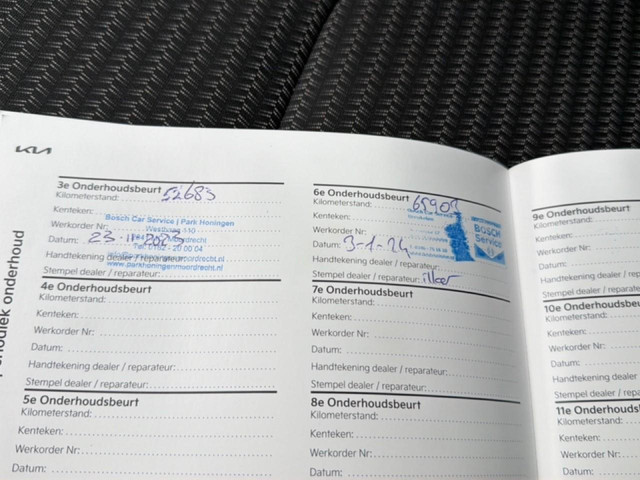 KIA
Periodiek onderhoud
3e Onderhoudsbeurt
Kilometerstand: 52683
Kenteken:
Bosch Car Service | Park Honingen
Werkorder Nr:
Datum: 23-11-2023
Handtekening dealer / reparateur:
www.parkhoningenmoordrecht.nl
Stempel dealer / reparateur:
4e Onderhoudsbeurt
Kilometerstand:
Kenteken:
Werkorder Nr:
Datum:
Handtekening dealer / reparateur:
Stempel dealer / reparateur:
5e Onderhoudsbeurt
Kilometerstand:
Kenteken:
Werkorder Nr:
Datum:
6e Onderhoudsbeurt
Kilometerstand:
Bosch Car Service
Kenteken:
Werkorder Nr:
BOSCH
Service
Datum: 3-1-24
Handtekening dealer / reparateur:
Stempel dealer / reparateur:
7e Onderhoudsbeurt
Kilometerstand:
Kenteken:
Werkorder Nr:
Datum:
Handtekening dealer / reparateur:
Stempel dealer / reparateur:
8e Onderhoudsbeurt
Kilometerstand:
Kenteken:
Werkorder Nr:
Datum:
9e Onderhoudsbeurt
Kilometerstand:
Kenteken:
Werkorder Nr:
Datum:
Handtekening dealer
Stempel dealer / repara
10e Onderhoudsbeu
Kilometerstand:
Kenteken:
Werkorder Nr:
Datum:
Handtekening dealer
Stempel dealer / repa
11e Onderhouds
Kilometerstand:
Kenteken:
Werkorder Nr:
Datum: